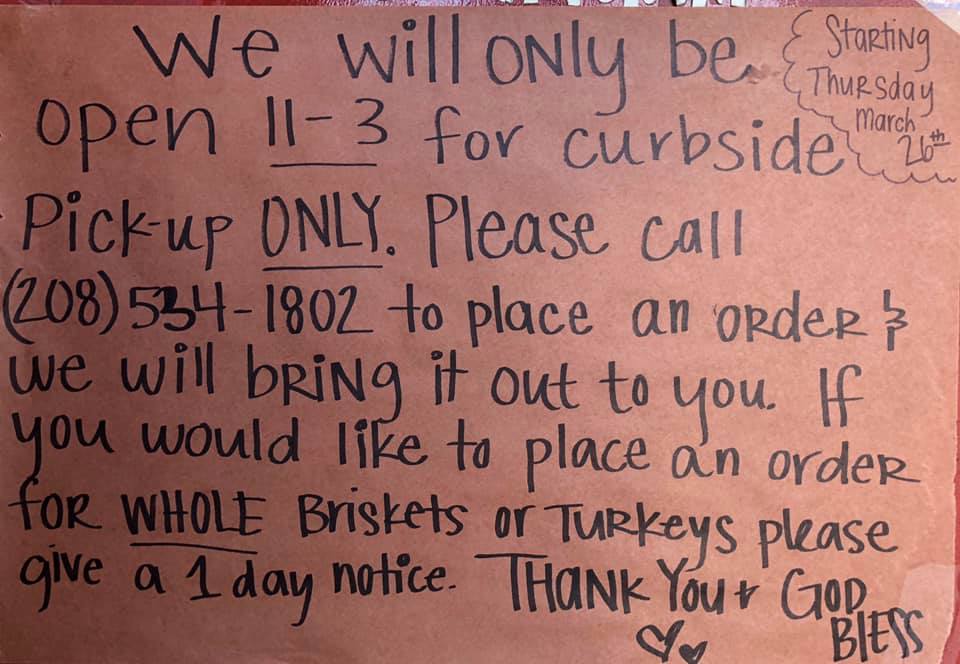 We will only be
open 11-3 for curbside
Pick-up ONLY. Please call
(208) 534-1802 to place an order &
we will bring it out to you. If
you would like to place an order
for WHOLE Briskets or Turkeys please
give a 1 day notice. THANK You + GOD
BLESS
Starting
Thursday
March
26th